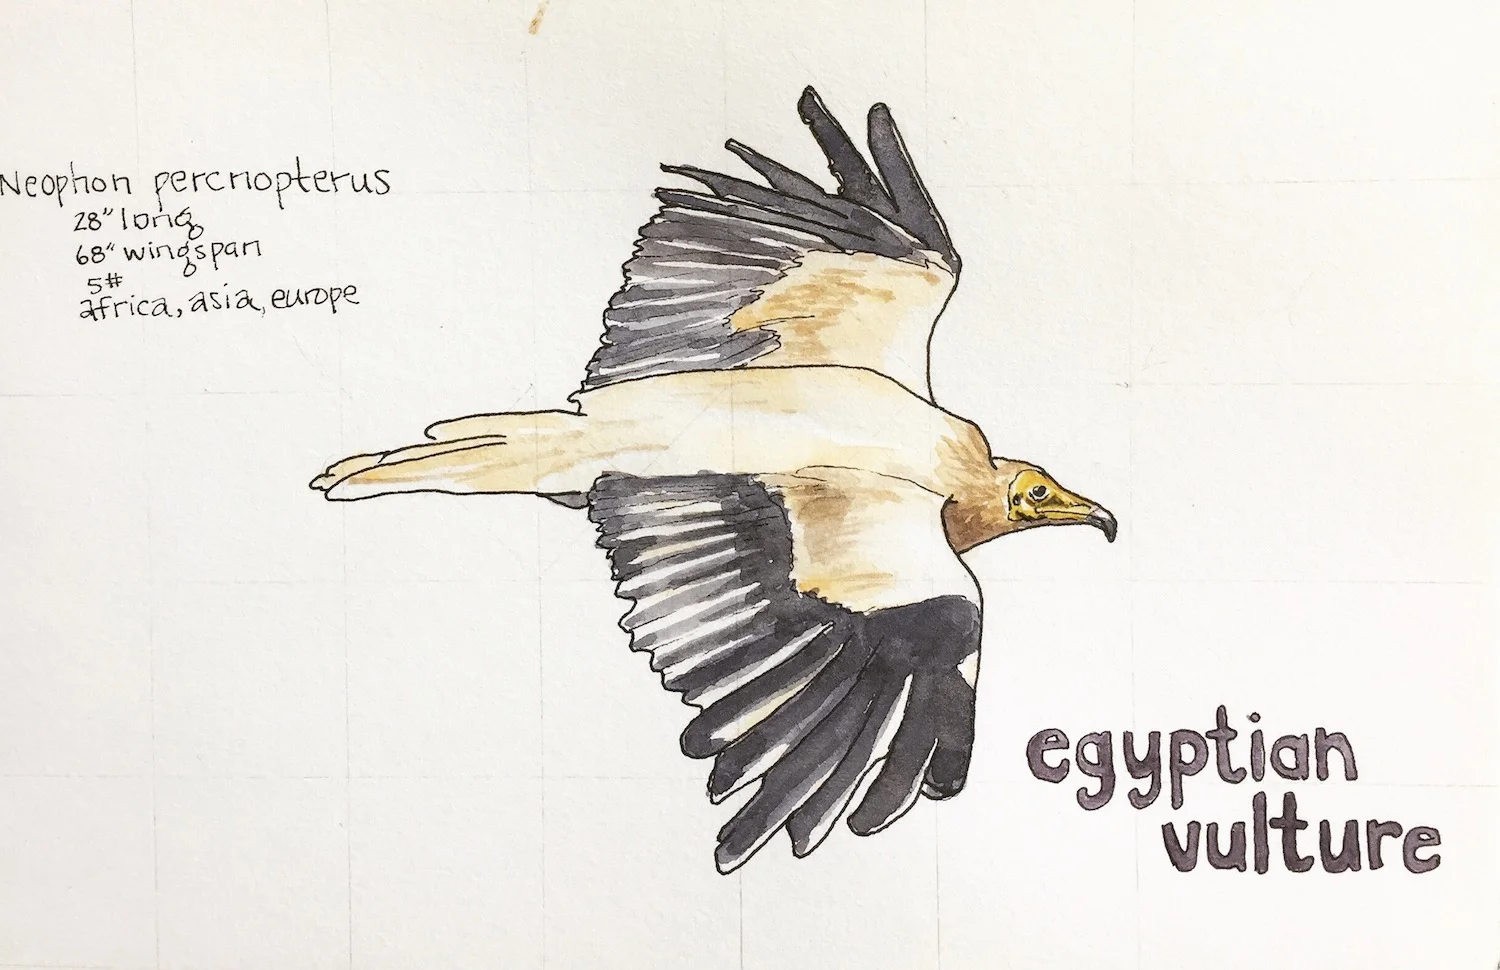 Neophon percnopterus
28" long
68" wingspan
5#
africa, asia, europe
egyptian
vulture